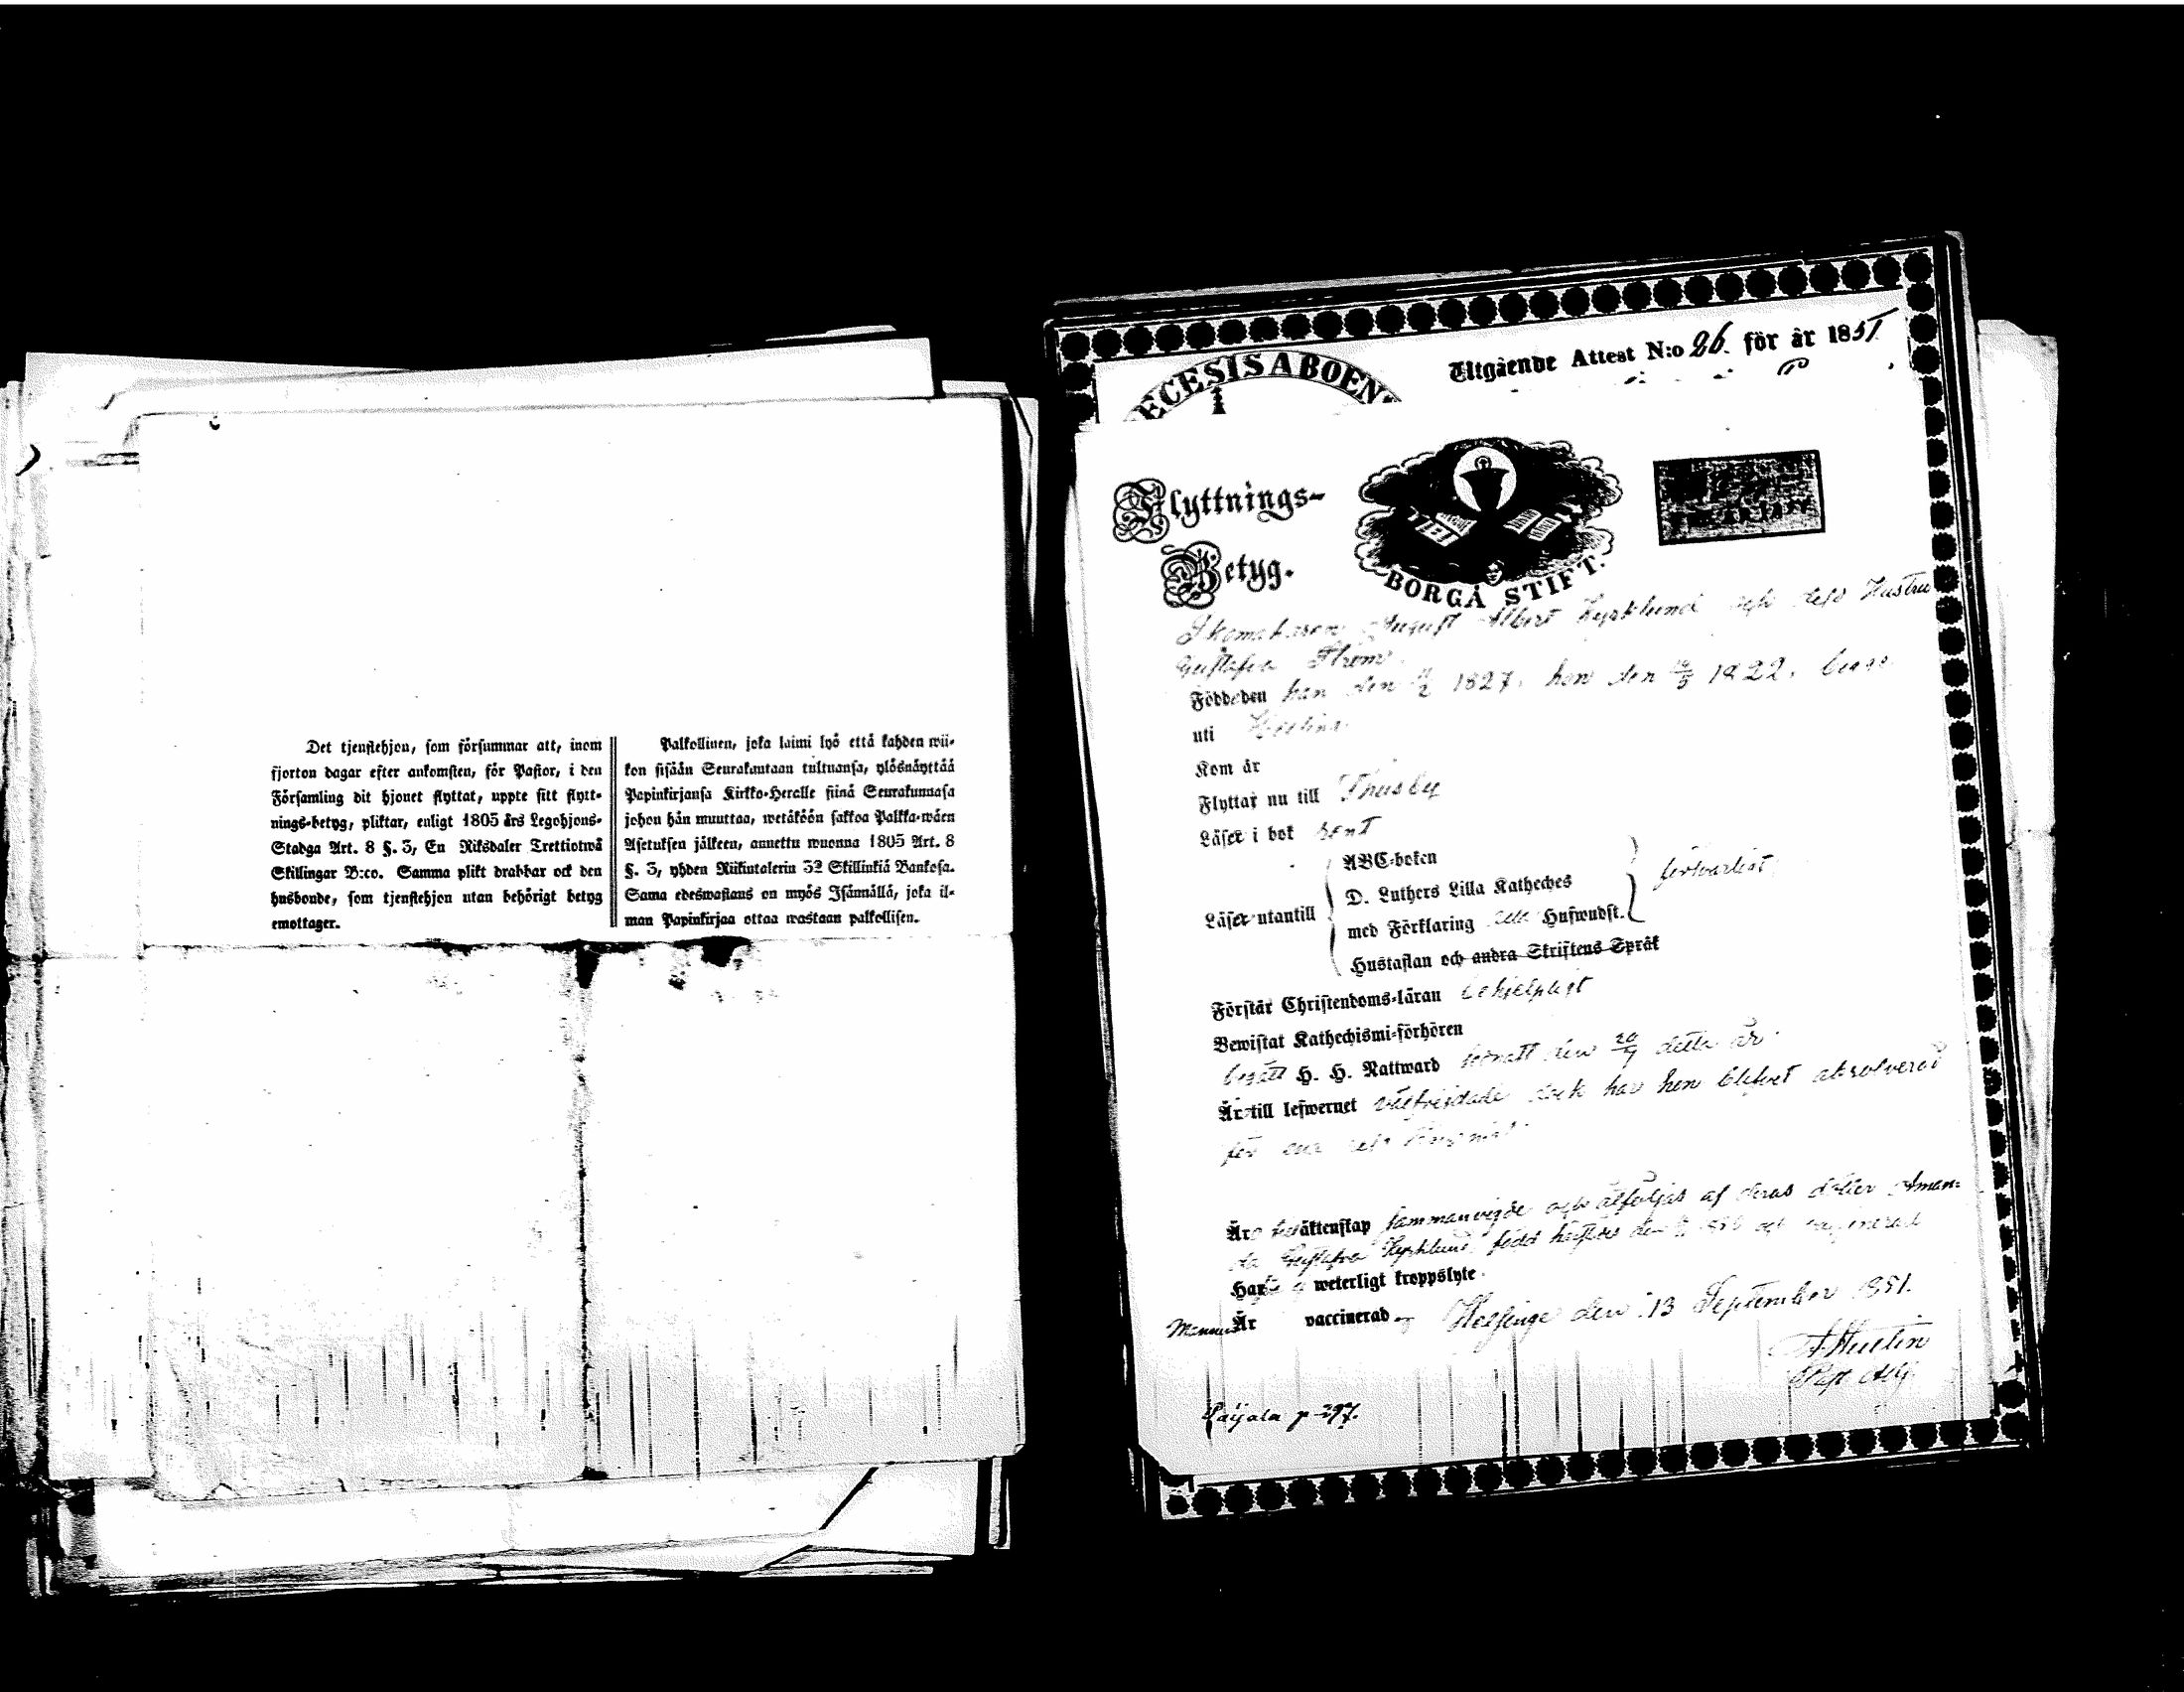 Det tjenstehjon, som försummar att, inom
fjorton dagar efter ankomsten, för Pastor, i den
Församling dit hjonet flyttat, uppte sitt flytt-
nings-betyg, pliktar, enligt 1805 års Legohjons-
Stadga Art. 8 §. 3, En Riksdaler Trettiotwå
Skillingar B:co. Samma plikt drabbar ock den
husbonde, som tjenstehjon utan behörigt betyg
emottager.
Palkollinen, joka laimi lyö että kahden wii-
kon sisään Seurakuntaan tultuansa, ylösnäyttää
Papinkirjansa Kirkko-Heralle siinä Seurakunnasa
johon hän muuttaa, wetäköön sakkoa Palkka-wäen
Asetuksen jälkeen, annettu wuonna 1805 Art. 8
§. 3, yhden Riikintalerin 32 Skillinkiä Bankosa.
Sama edeswastaus on myös Isännällä, joka il-
man Papinkirjaa ottaa wastaan palkollisen.
Utgående Attest N:o 26. för år 1851.
ECESIS ABOEN
Flyttnings-
Betyg.
BORGÅ STIFT.
Skomakaren August Albert Kyrklund och dess Hustru
Gustafva Ström.
Född den han den 1827. hon den 1822.
uti
Kom år
Flyttar nu till Thusby
Läser i bok rent
ABC-boken
D. Luthers Lilla Kateches
Läser utantill med Förklaring Hufwudst. försvarligt
Hustaflan och andra Skriftens Språk
Förstår Christendoms-läran behjelpligt
Bewistat Kathechismi-förhören
begått H. H. Nattward den detta år
Är till lefwernet välfrejdade dock har hon blifvit absolverad
för
Äro äktenskap sammanvigde och åtföljas af deras dotter Aman-
da Gustafva Kyrklund, född den och vaccinerad
Har weterligt kroppslyte.
Mannen Är vaccinerad Helsinge den 13 September 1851.
Päijala p 297.